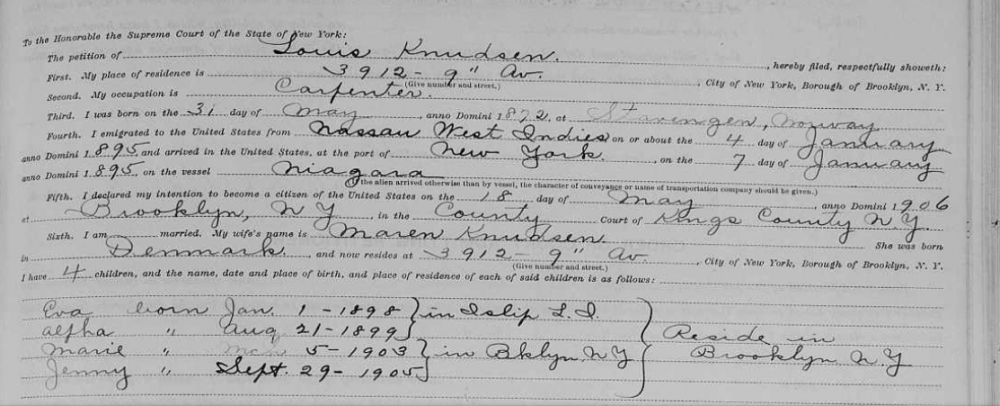 To the Honorable the Supreme Court of the State of New York:
The petition of Louis Knudsen. , hereby filed, respectfully showeth:
First. My place of residence is 3912 - 9" Av. , City of New York, Borough of Brooklyn, N. Y.
(Give number and street.)
Second. My occupation is Carpenter.
Third. I was born on the 31 day of May , anno Domini 1872, at Stavengen, Norway
Fourth. I emigrated to the United States from Nassau West Indies on or about the 4 day of January
anno Domini 1895, and arrived in the United States, at the port of New York. , on the 7 day of January
anno Domini 1895, on the vessel Niagara
(If the alien arrived otherwise than by vessel, the character of conveyance or name of transportation company should be given.)
Fifth. I declared my intention to become a citizen of the United States on the 18 day of May , anno Domini 1906
at Brooklyn, N Y , in the County Court of Kings County N.Y.
Sixth. I am married. My wife's name is Maren Knudsen. She was born
in Denmark. , and now resides at 3912 - 9" Av. , City of New York, Borough of Brooklyn, N. Y.
(Give number and street.)
I have 4 children, and the name, date and place of birth, and place of residence of each of said children is as follows:
Eva born Jan. 1 - 1898 } in Islip L.I.
alpha " Aug 21 - 1899 } Reside in
Marie " 5 - 1903 } in Bklyn. N Y Brooklyn N.Y
Jenny " Sept. 29 - 1905 }